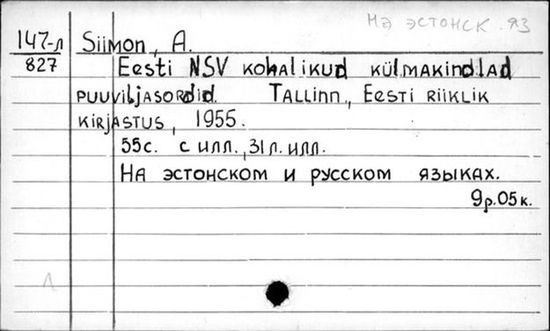 на эстонск. яз
147-л Siimon, A.
827 Eesti NSV kohalikud külmakindlad
puuviljasordid. Tallinn, Eesti Riiklik
kirjastus, 1955.
55с. с илл., 31 л. илл.
На эстонском и русском языках.
9р.05к.
Л